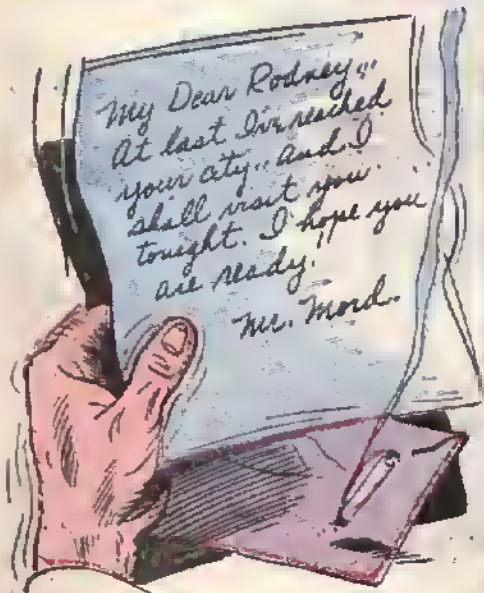 My Dear Rodney,,
At last I've reached
your city.. and I
shall visit you
tonight. I hope you
are ready!
Mr. Mord.